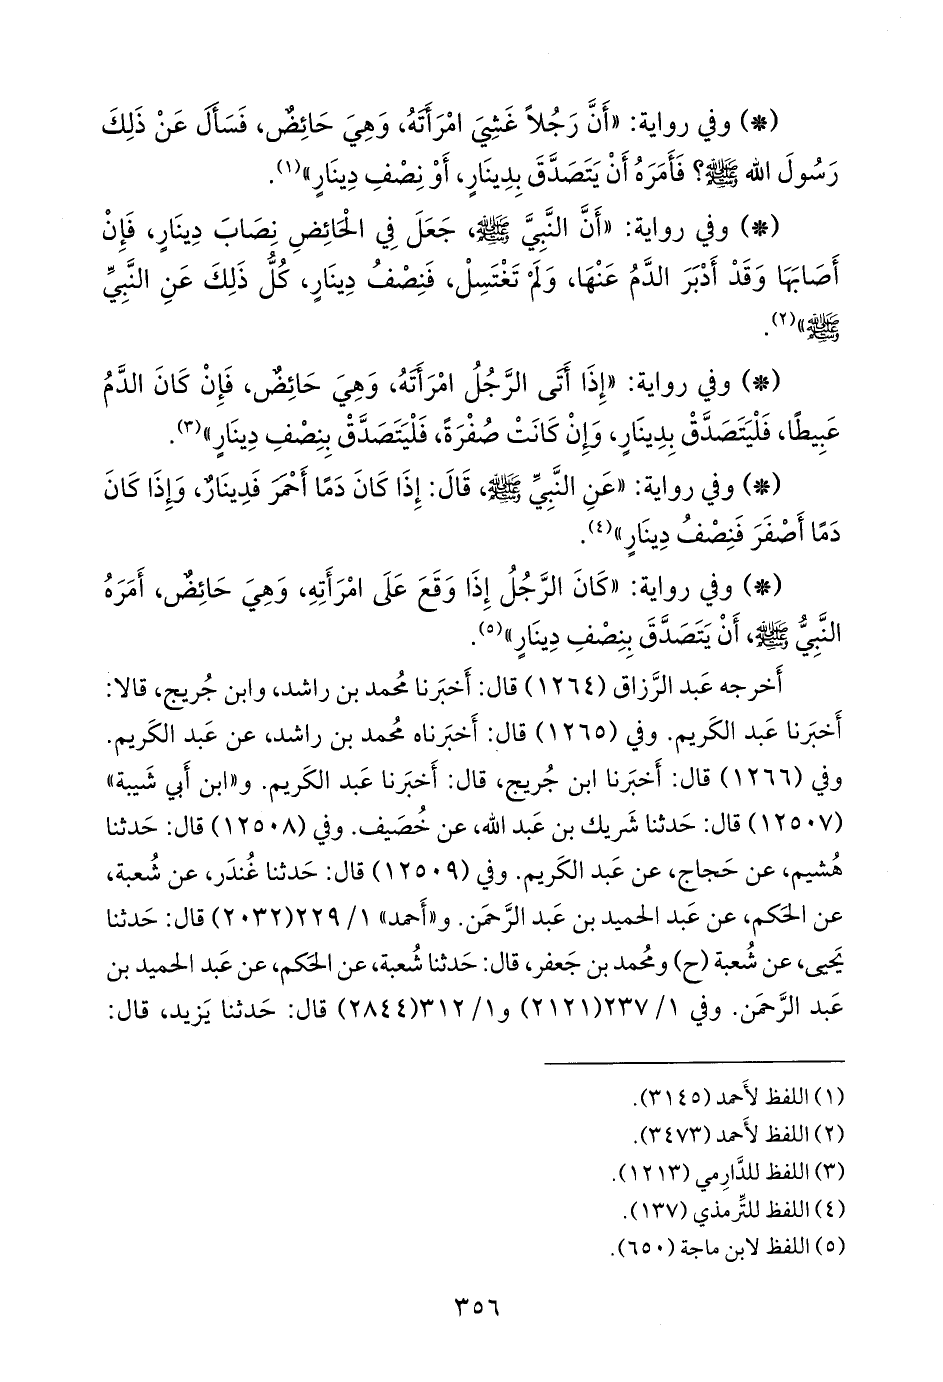 (*) وفي رواية: «أَنَّ رَجُلاً غَشِيَ امْرَأَتَهُ، وَهِيَ حَائِضٌ، فَسَأَلَ عَنْ ذَلِكَ
رَسُولَ الله ﷺ؟ فَأَمَرَهُ أَنْ يَتَصَدَّقَ بِدِينَارٍ، أَوْ نِصْفِ دِينَارٍ»(١).
(*) وفي رواية: «أَنَّ النَّبِيَّ ﷺ، جَعَلَ فِي الْحَائِضِ نِصَابَ دِينَارٍ، فَإِنْ
أَصَابَهَا وَقَدْ أَدْبَرَ الدَّمُ عَنْهَا، وَلَمْ تَغْتَسِلْ، فَنِصْفُ دِينَارٍ، كُلُّ ذَلِكَ عَنِ النَّبِيِّ
ﷺ»(٢).
(*) وفي رواية: «إِذَا أَتَى الرَّجُلُ امْرَأَتَهُ، وَهِيَ حَائِضٌ، فَإِنْ كَانَ الدَّمُ
عَبِيطًا، فَلْيَتَصَدَّقْ بِدِينَارٍ، وَإِنْ كَانَتْ صُفْرَةً، فَلْيَتَصَدَّقْ بِنِصْفِ دِينَارٍ»(٣).
(*) وفي رواية: «عَنِ النَّبِيِّ ﷺ، قَالَ: إِذَا كَانَ دَمًا أَحْمَرَ فَدِينَارٌ، وَإِذَا كَانَ
دَمًا أَصْفَرَ فَنِصْفُ دِينَارٍ»(٤).
(*) وفي رواية: «كَانَ الرَّجُلُ إِذَا وَقَعَ عَلَى امْرَأَتِهِ، وَهِيَ حَائِضٌ، أَمَرَهُ
النَّبِيُّ ﷺ، أَنْ يَتَصَدَّقَ بِنِصْفِ دِينَارٍ»(٥).
أَخرجه عَبد الرَّزاق (١٢٦٤) قال: أَخبَرنا مُحمد بن راشد، وابن جُريج، قالا:
أَخبَرنا عَبد الكَريم. وفي (١٢٦٥) قال: أَخبَرناه مُحمد بن راشد، عن عَبد الكَريم.
وفي (١٢٦٦) قال: أَخبَرنا ابن جُريج، قال: أَخبَرنا عَبد الكَريم. و«ابن أَبي شَيبة»
(١٢٥٠٧) قال: حَدثنا شَريك بن عَبد الله، عن خُصَيف. وفي (١٢٥٠٨) قال: حَدثنا
هُشيم، عن حَجاج، عن عَبد الكَريم. وفي (١٢٥٠٩) قال: حَدثنا غُندَر، عن شُعبة،
عن الحَكم، عن عَبد الحَميد بن عَبد الرَّحمَن. و«أَحمد» ١/ ٢٢٩(٢٠٣٢) قال: حَدثنا
يَحيى، عن شُعبة (ح) ومُحمد بن جَعفر، قال: حَدثنا شُعبة، عن الحَكم، عن عَبد الحَميد بن
عَبد الرَّحمَن. وفي ١/ ٢٣٧(٢١٢١) و١/ ٣١٢(٢٨٤٤) قال: حَدثنا يَزيد، قال:
(١) اللفظ لأَحمد (٣١٤٥).
(٢) اللفظ لأَحمد (٣٤٧٣).
(٣) اللفظ للدَّارِمي (١٢١٣).
(٤) اللفظ للتِّرمذي (١٣٧).
(٥) اللفظ لابن ماجة (٦٥٠).
٣٥٦